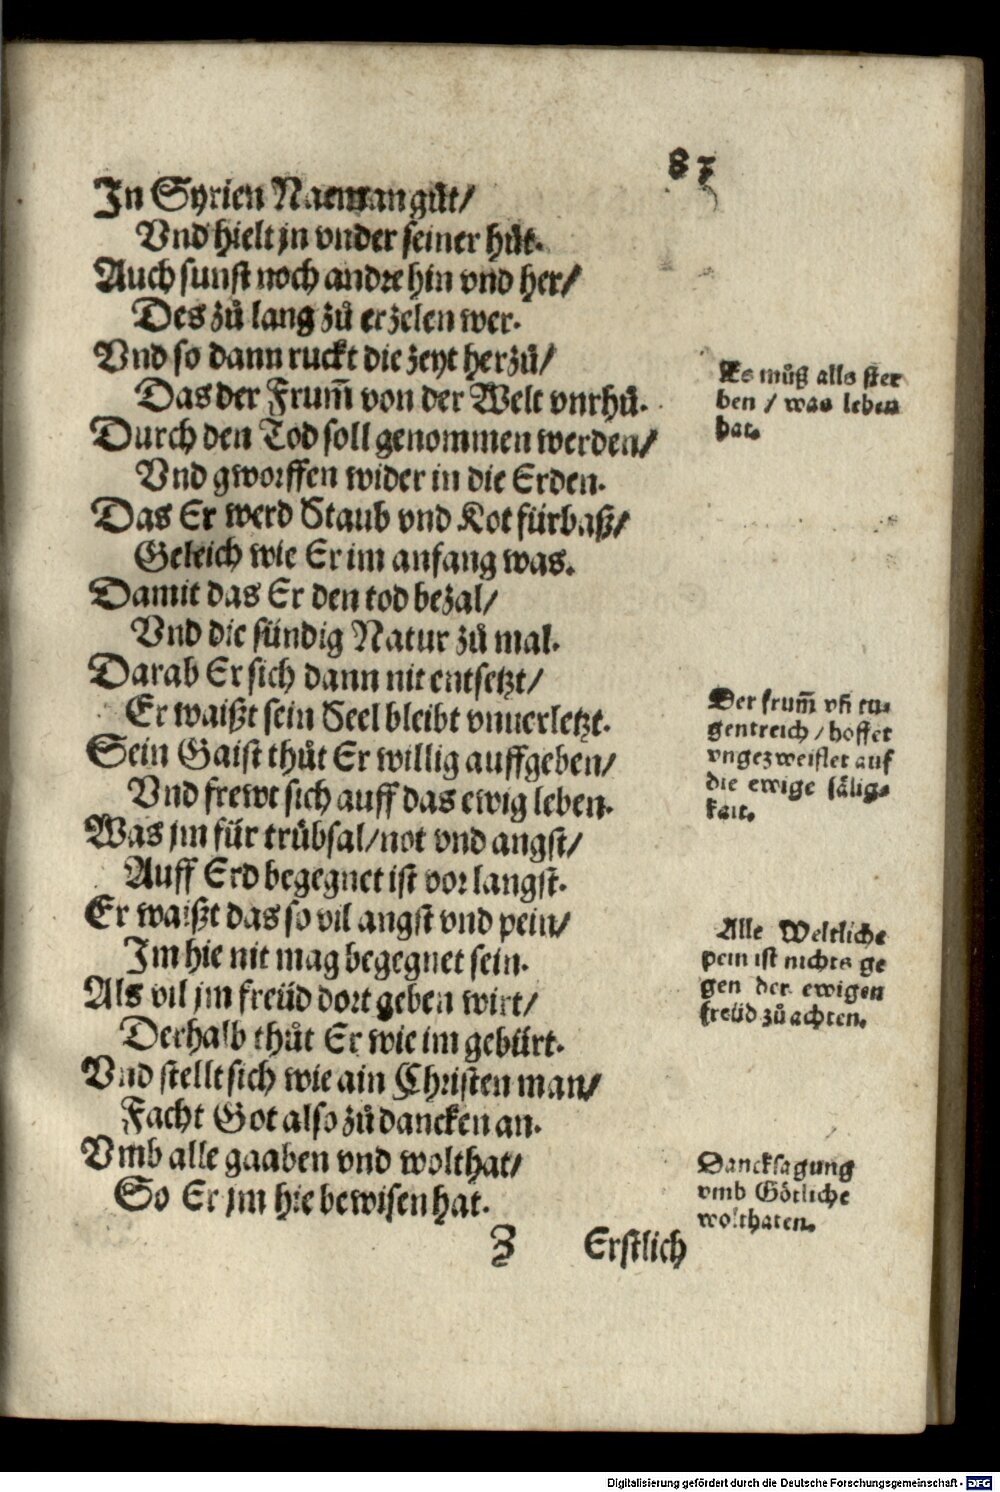 87
In Syrien Naeman gůt/
Vnd hielt jn vnder seiner hůt.
Auch sunst noch andre hin vnd her/
Des zů lang zů erzelen wer.
Vnd so dann ruckt die zeyt herzů/
Das der Frum̃ von der Welt vnrhů.
Durch den Tod soll genommen werden/
Vnd gworffen wider in die Erden.
Das Er werd Staub vnd Kot fürbaß/
Geleich wie Er im anfang was.
Damit das Er den tod bezal/
Vnd die sündig Natur zů mal.
Darab Er sich dann nit entsetzt/
Er waißt sein Seel bleibt vnuerletzt.
Sein Gaist thůt Er willig auffgeben/
Vnd frewt sich auff das ewig leben.
Was jm für trübsal/not vnd angst/
Auff Erd begegnet ist vor langst.
Er waißt das so vil angst vnd pein/
Im hie nit mag begegnet sein.
Als vil jm freüd dort geben wirt/
Derhalb thůt Er wie im gebürt.
Vnd stellt sich wie ain Christen man/
Facht Got also zů dancken an.
Vmb alle gaaben vnd wolthat/
So Er jm hie bewisen hat.
Z Erstlich
Es můß alls ster
ben / was leben
hat.
Der frum̃ vñ tu-
gentreich / hoffet
vngezweiflet auf
die ewige sälig-
kait.
Alle Weltliche
pein ist nichts ge
gen der ewigen
freüd zů achten.
Dancksagung
vmb Götliche
wolthaten.
Digitalisierung gefördert durch die Deutsche Forschungsgemeinschaft - DFG